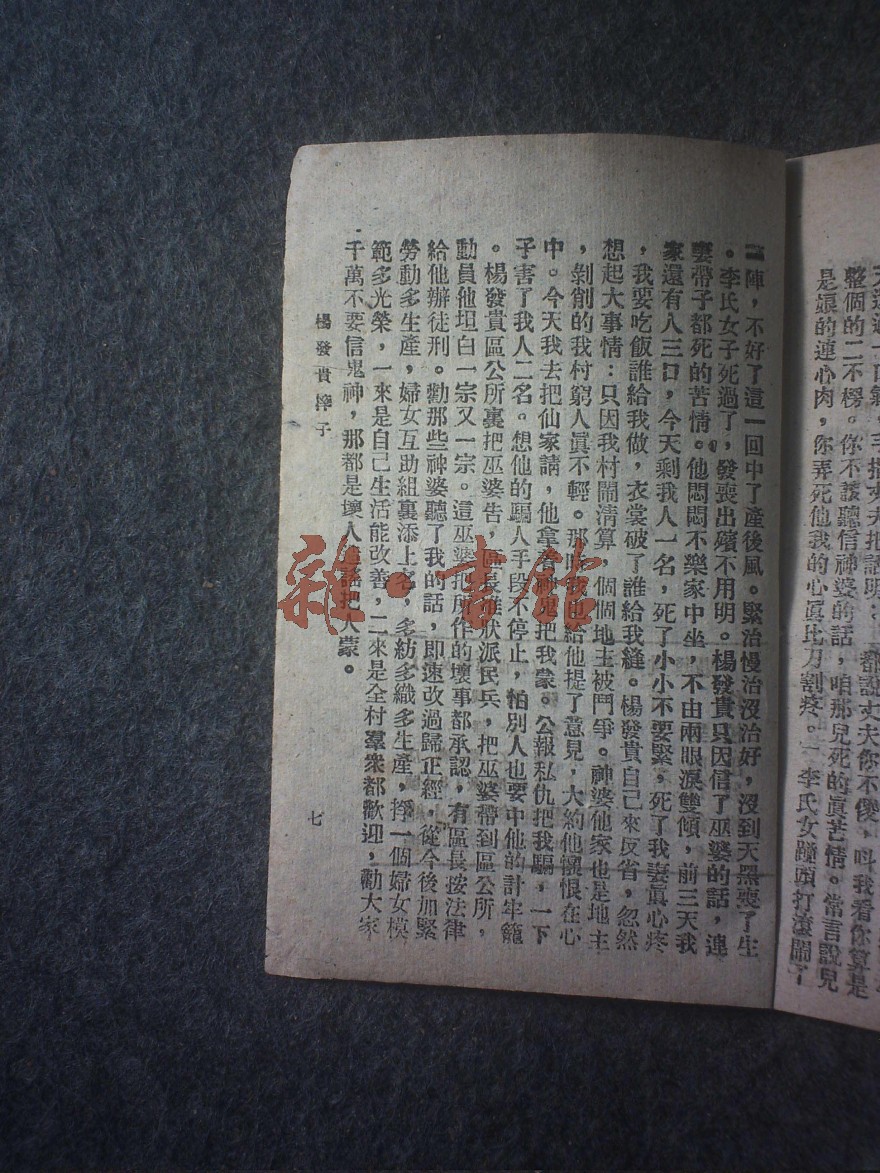 天
整個的二不楞。你不該聽信神婆的話，咱那兒死的眞苦情。常言說兒
是娘的連心肉，你弄死他我的心眞比刀割疼。」李氏女蹱頭打滾鬧了
一陣，不好了這一回中了產後風。緊治慢治沒治好，沒到天黑喪了生
。李氏女子死過了，發喪出殯不用明。楊發貴只因信了巫婆的話，連
妻帶子都死的苦情。他悶悶不樂家中坐，不由兩眼淚雙傾，前三天我
家還有人三口，今天剩我人一名，死了小小不要緊，死了我妻眞心疼
，我要吃飯誰給我做，衣裳破了誰給我縫。楊發貴自己來反省，忽然
想起大事情：只因我村鬧清算，個個地主被鬥爭。神婆他家也是地主
，剝削的我村窮人眞不輕。那時我也給他提了意見，大約他懷恨在心
中。今天我去把仙家請，他拿着神鬼把我蒙。公報私仇把我騙，一下
子害了我人二名。想他的騙人手段不停止，怕別人也要中他的計牢籠
。楊發貴區公所裏把巫婆告，區長准狀派民兵，把巫婆帶到區公所，
動員他坦白一宗又一宗。這巫婆把所作的壞事都承認，有區長按法律
給他辦徒刑。勸那些神婆聽了我的話，即速改過歸正經，從今後加緊
勞動多生產，婦女互助組裏添上名，多紡多織多生產，掙一個婦女模
範多光榮，一來是自己生活能改善，二來是全村羣衆都歡迎，勸大家
千萬不要信鬼神，那都是壞人造謠把人蒙。
楊發貴摔子
七
雜·書館